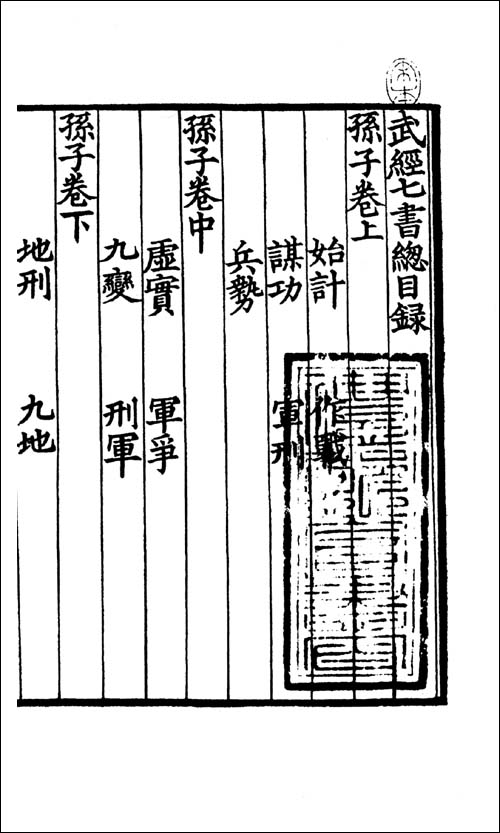 武經七書總目録
孫子卷上
始計 作戰
謀功 軍刑
兵勢
孫子卷中
虛實 軍爭
九變 刑軍
孫子卷下
地刑 九地